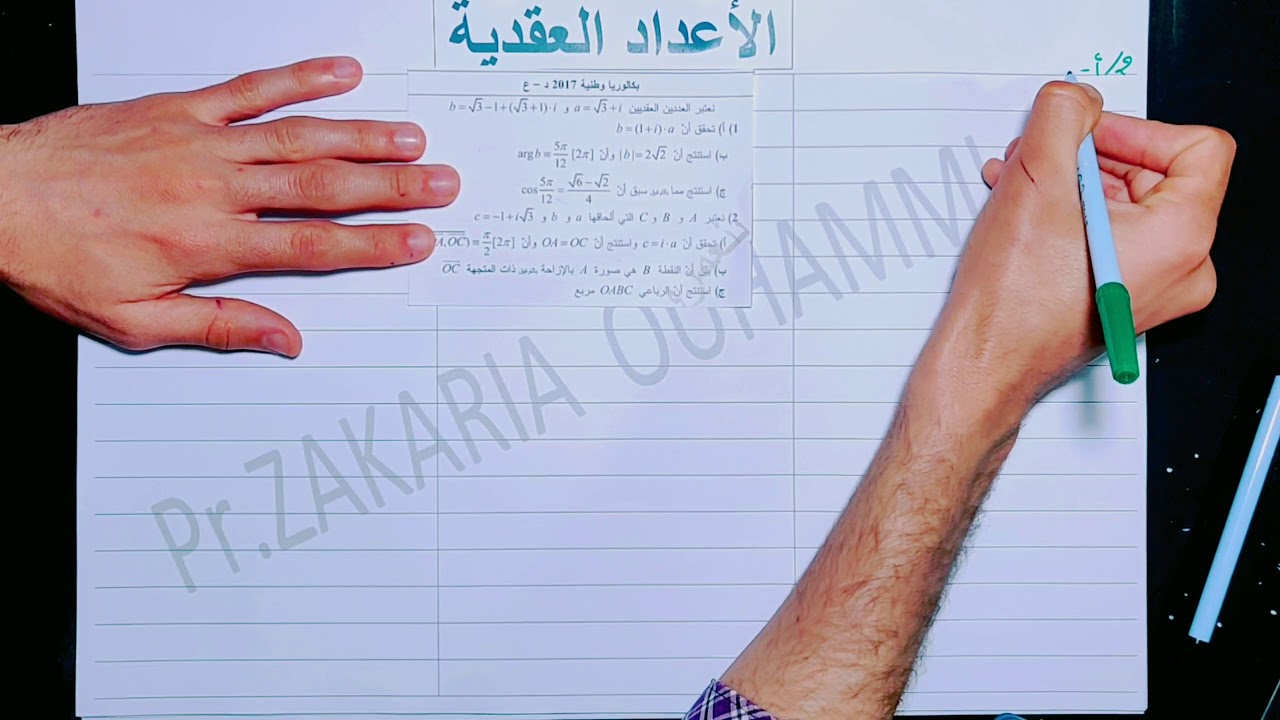 الأعداد العقدية
2/أ-
بكالوريا وطنية 2017 د – ع
نعتبر العددين العقديين a=√3+i و b=√3−1+(√3+1)·i
1) أ) تحقق أن b=(1+i)·a
ب) استنتج أن |b|=2√2 وأن arg b ≡ 5π/12 [2π]
ج) استنتج مما سبق أن cos 5π/12 = (√6−√2)/4
2) نعتبر A و B و C التي ألحاقها a و b و c=−1+i√3
أ) تحقق أن c=i·a واستنتج أن OA=OC وأن A,OC) ≡ π/2 [2π]
ب) بين أن النقطة B هي صورة A بالإزاحة ذات المتجهة OC
ج) استنتج أن الرباعي OABC مربع
Pr.ZAKARIA OUHAMMI